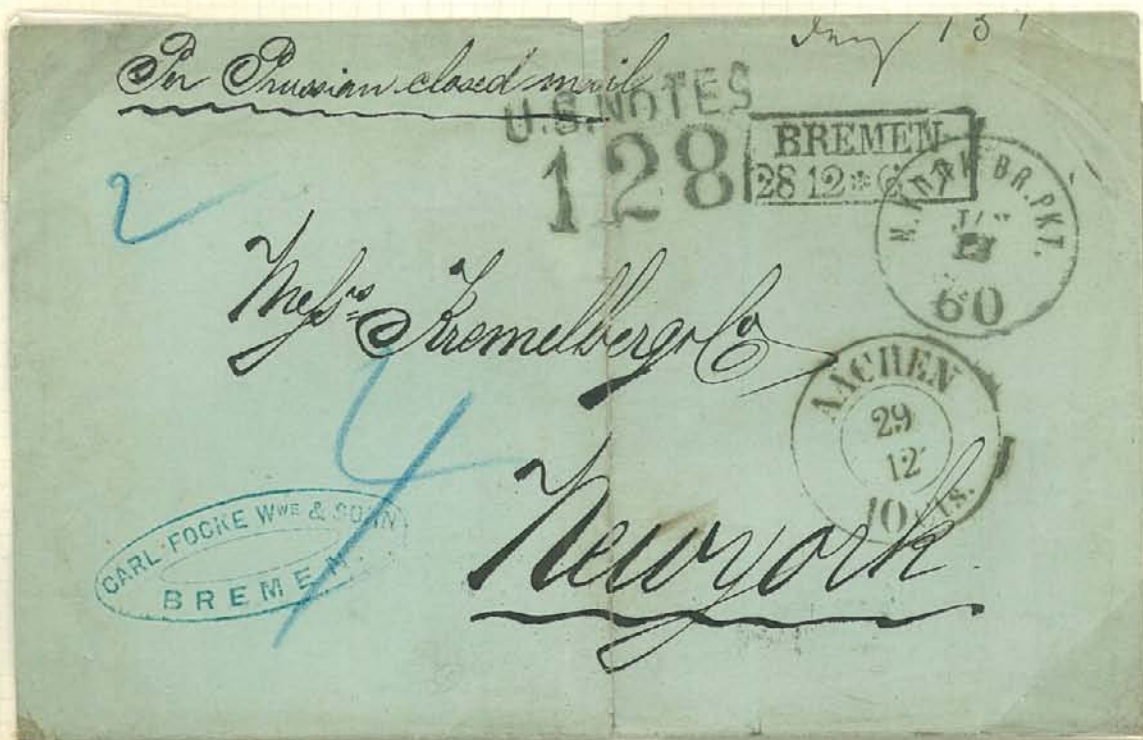 Per Prussian closed mail
U.S. NOTES
128
BREMEN
28 12 *
N. YORK BR. PKT.
JAN
60
2
Messrs Kremelberg & Co
4
AACHEN
29
12
10 Cts.
Newyork
CARL FOCKE WWE & SOHN
BREMEN.